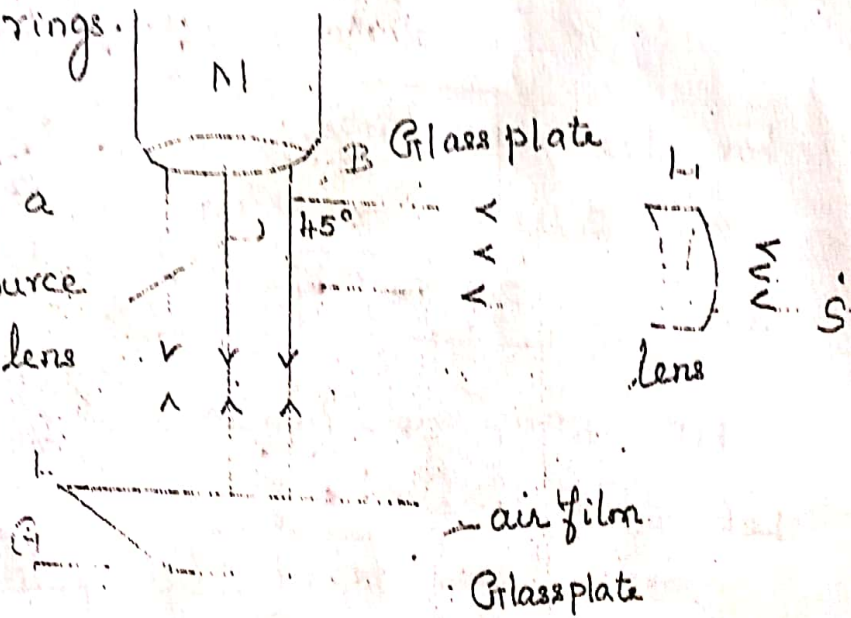 rings.
M
B Glass plate
L
a
45°
urce
S
lens
lens
L
air film
G
Glass plate